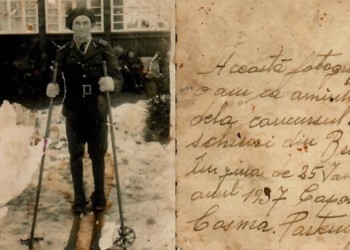 Această fotogra
o am ca amint
dela concursul
schiuri din B
în ziua de 25 Ian
anul 1937 Capo
Cosma.